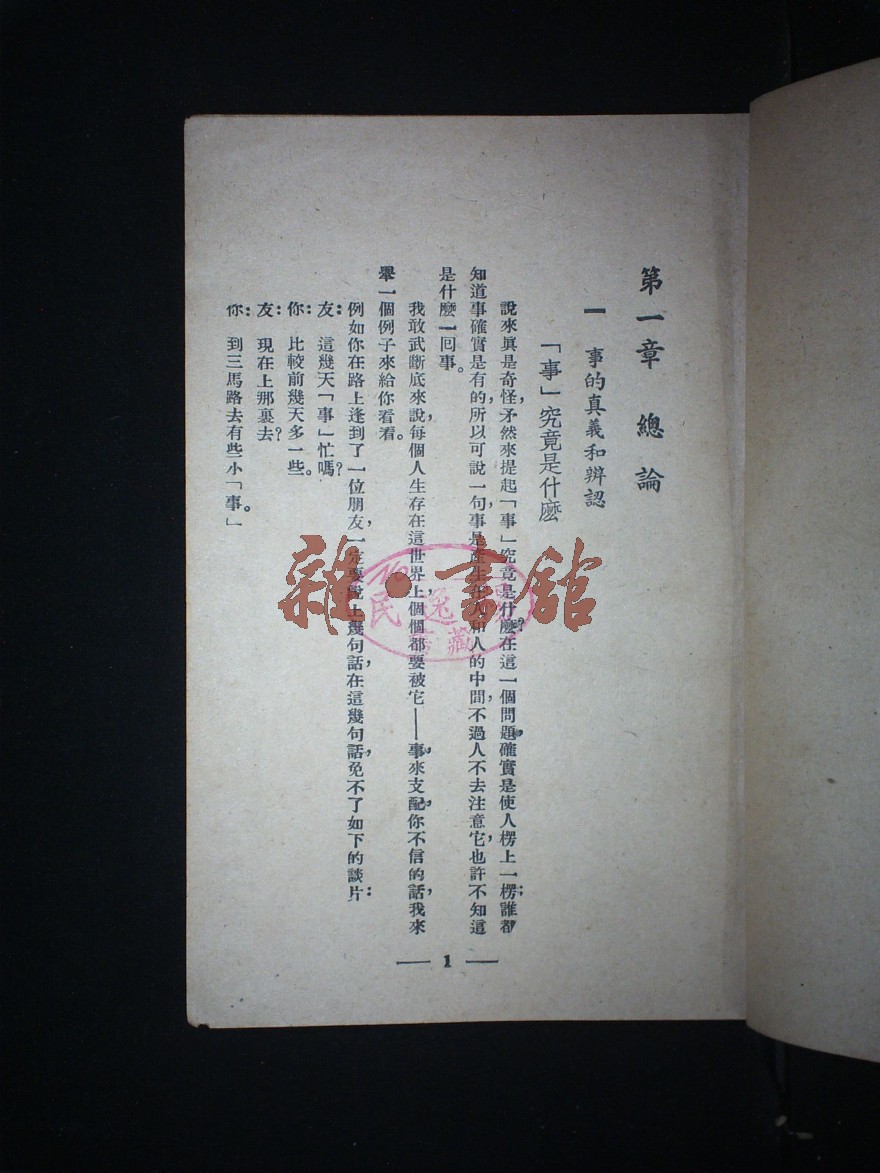 第一章　總論
一　事的真義和辨認
「事」究竟是什麽
說來眞是奇怪，矛然來提起「事」究竟是什麽？在這一個問題，確實是使人楞上一楞；誰都
知道事確實是有的，所以可說一句，事是產生在人和人的中間，不過人不去注意它，也許不知這
是什麽一回事。
我敢武斷底來說，每個人生存在這世界上，個個都要被它——事，來支配，你不信的話，我來
舉一個例子來給你看看。
例如你在路上逢到了一位朋友，一定要說上幾句話，在這幾句話，免不了如下的談片：
友：　這幾天「事」忙嗎？
你：　比較前幾天多一些。
友：　現在上那裏去？
你：　到三馬路去有些小「事。」
1
雜·書館
民逸
書藏